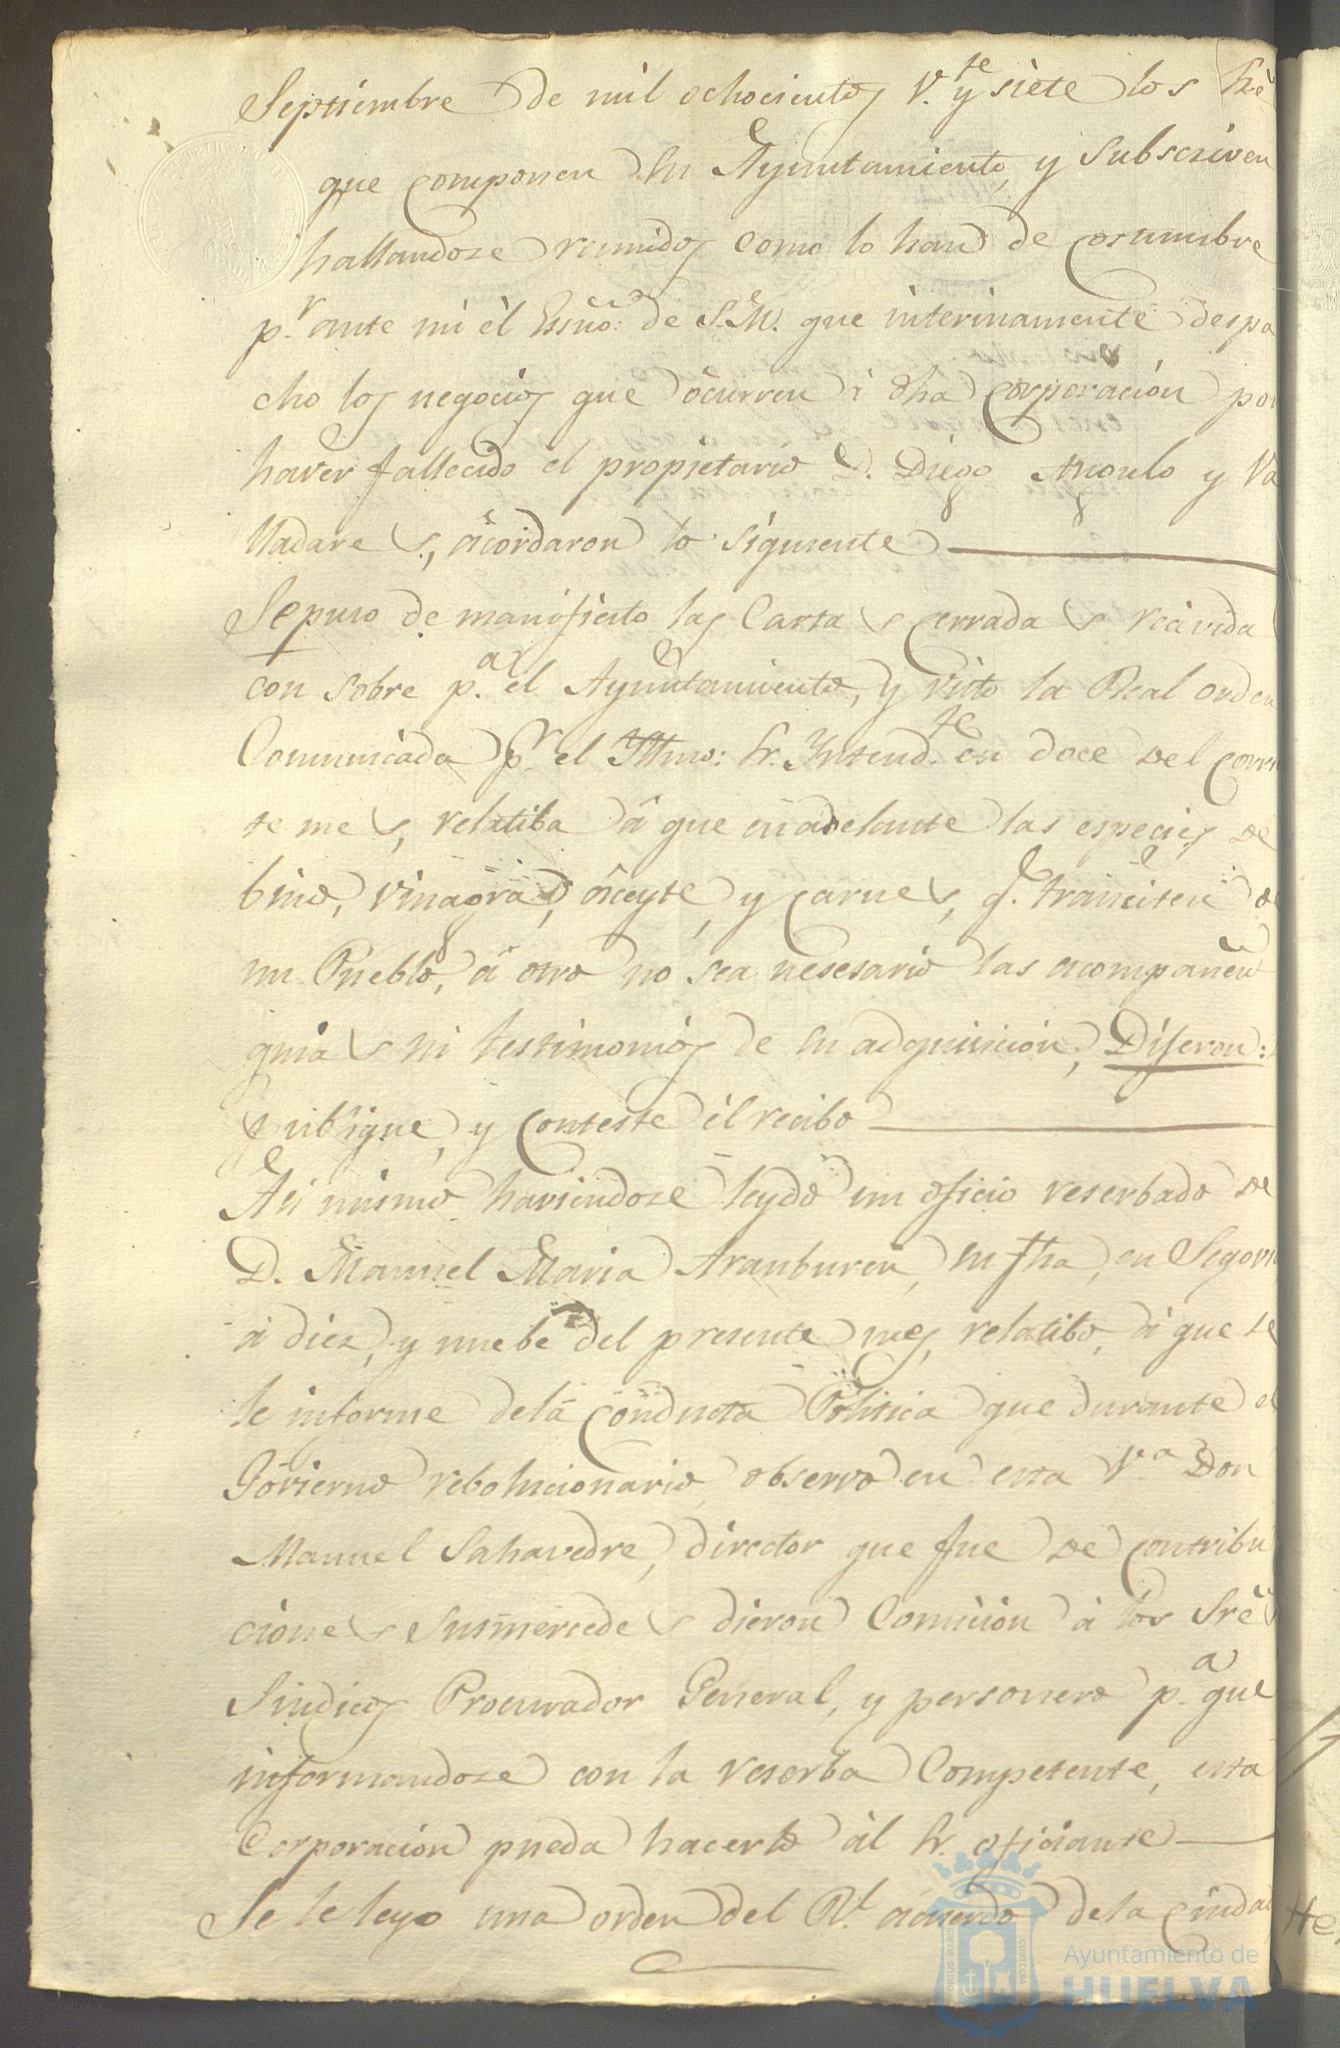 Septiembre de mil ochocientos v.te y siete los Sres
que componen su Ayuntamiento, y subscriven
hallandose reunidos como lo han de costumbre
p.r ante mi el Essno: de S.M. que interinamente despa
cho los negocios que ocurren à dha corporacion por
haver fallecido el propietario D. Diego Angulo y Va
lladares, acordaron lo siguiente
Se puso de manifiesto las Cartas cerradas recivida
con sobre p.a el Ayuntamiento, y visto la Real orden
Comunicada p.r el Yltmo: Sr. Yntend.te en doce del corrn
te mes, relatiba á que en adelante las especies de
bino, vinagra, aceyte, y carnes, q.e transiten de
un Pueblo, á otro no sea nesesario las acompañen
guias ni testimonios de su adquisicion, Dijeron:
publique, y conteste el recibo
Asi mismo haviendose leydo un oficio reserbado de
D. Manuel Maria Aranburen, su fha, en Segovia
á diez, y nuebe del presente mes, relatibo, á que se
le informe de la conducta Politica que durante el
Govierno rebolucionario, observo en esta V.a Don
Manuel Sahavedre, director que fue de contribu
ciones sus mercedes dieron Comision à los Sres
Sindicos Procurador General, y personero p.a que
informandose con la reserba Competente, esta
Corporacion pueda hacerlo al Sr. oficiante
Se le leyo una orden del R.l acuerdo de la Ciudad
Ayuntamiento de
HUELVA